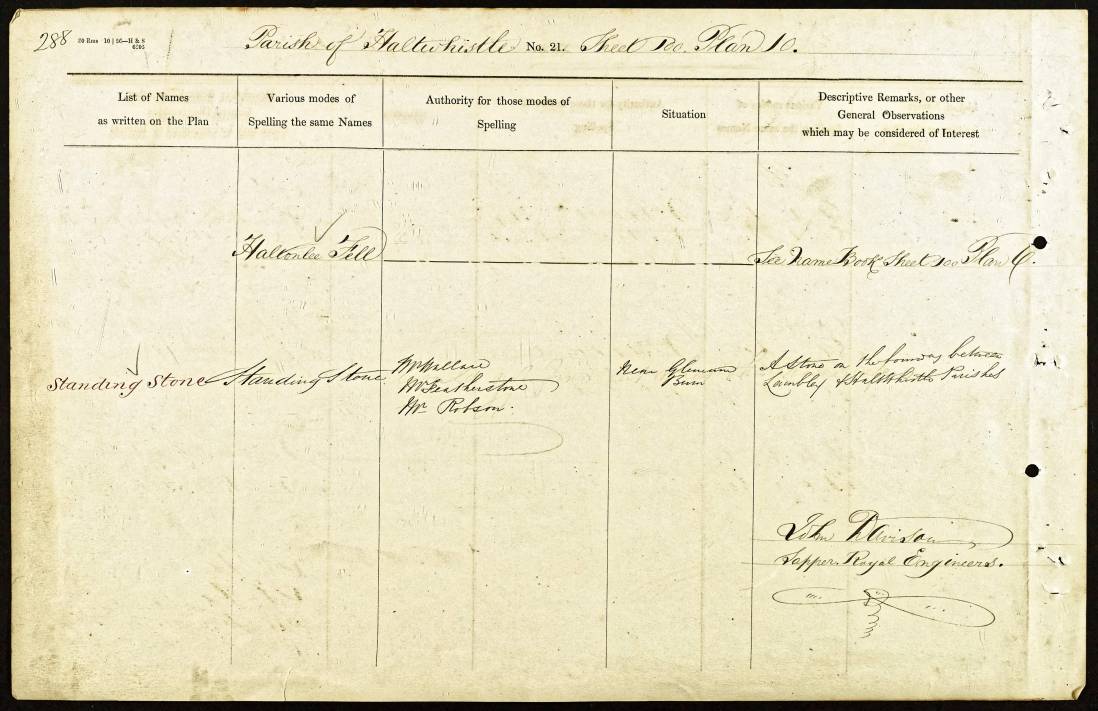 288 20 Rms 10 | 56—H & S
6205
Parish of Haltwhistle No. 21. Sheet 100 Plan 10.
List of Names
as written on the Plan
Various modes of
Spelling the same Names
Authority for those modes of
Spelling
Situation
Descriptive Remarks, or other
General Observations
which may be considered of Interest
Haltonlee Fell
See Name Book Sheet 100 Plan 6.
Standing Stone
Standing Stone
Mr Wallace
Mr Featherstone
Mr Robson.
Near Glencune
Burn
A Stone on the boundary between
Lambley & Haltwhistle Parishes
John Davison
Sapper Royal Engineers.